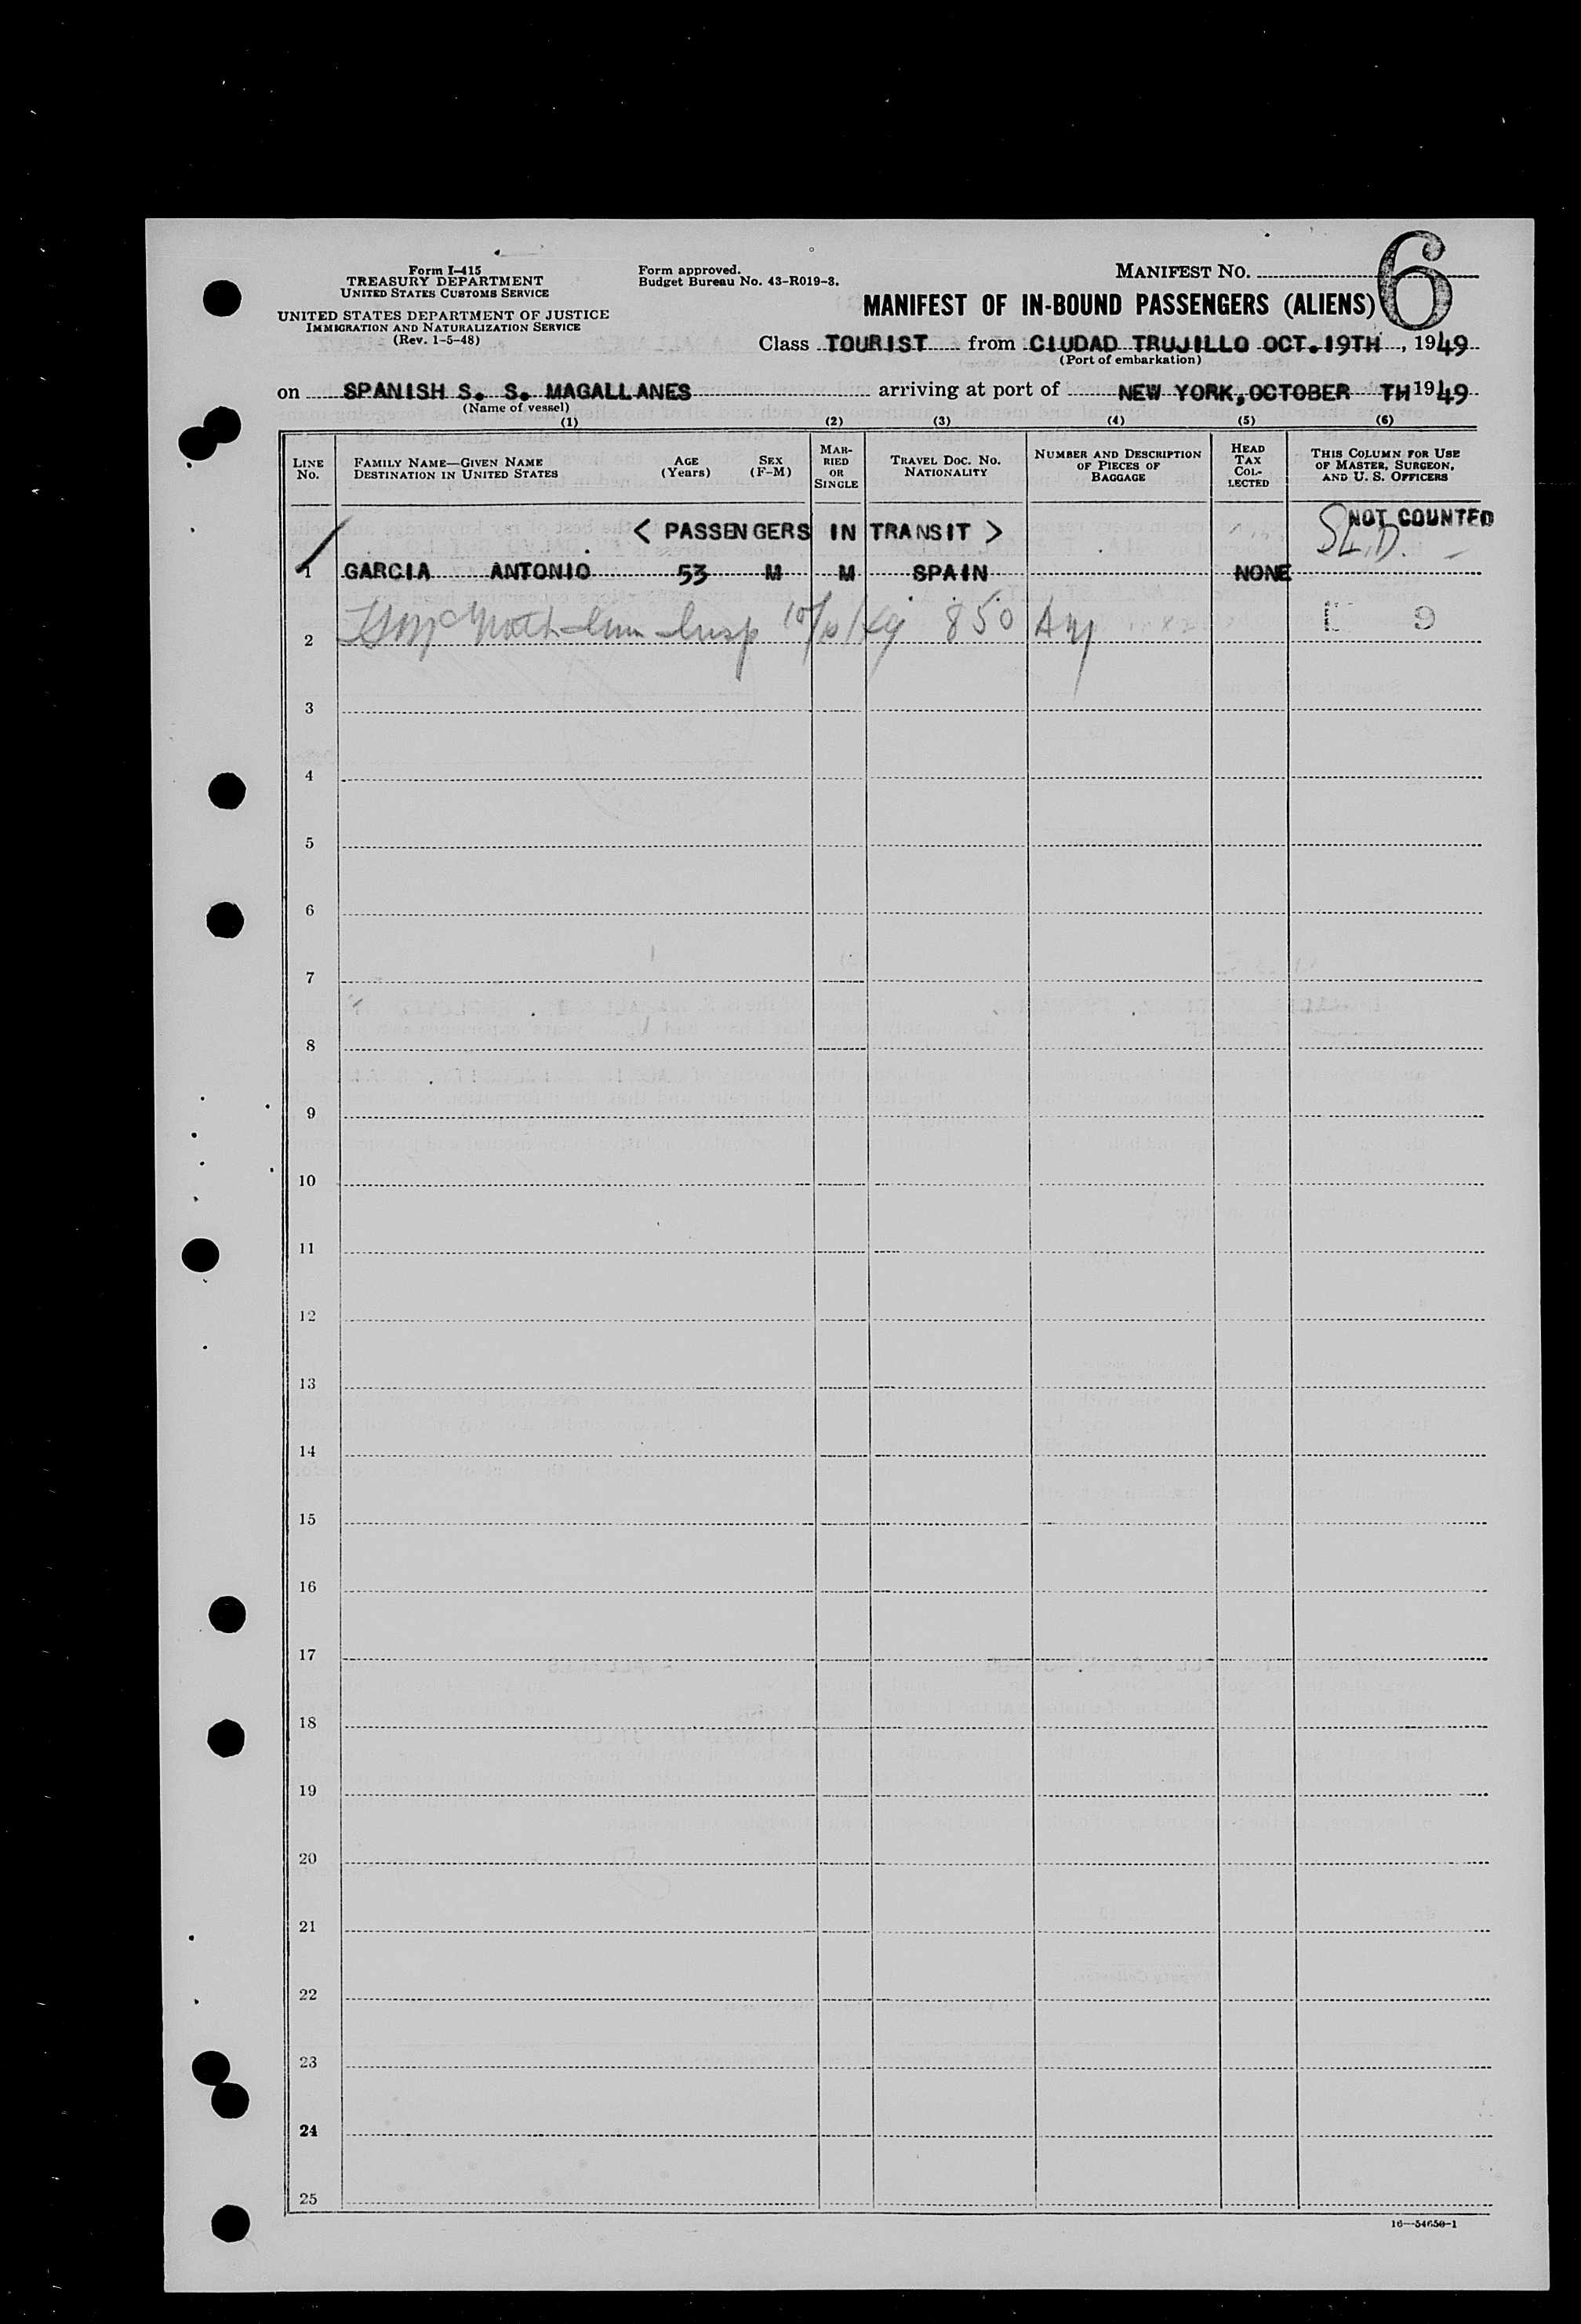 Form I-415
TREASURY DEPARTMENT
UNITED STATES CUSTOMS SERVICE
UNITED STATES DEPARTMENT OF JUSTICE
IMMIGRATION AND NATURALIZATION SERVICE
(Rev. 1-5-48)
Form approved.
Budget Bureau No. 43-R019-3.
MANIFEST NO.
6
MANIFEST OF IN-BOUND PASSENGERS (ALIENS)
Class TOURIST from CIUDAD TRUJILLO OCT.19TH, 1949
(Port of embarkation)
on SPANISH S. S. MAGALLANES arriving at port of NEW YORK, OCTOBER TH 1949
(Name of vessel)
(1) (2) (3) (4) (5) (6)
LINE NO.
FAMILY NAME—GIVEN NAME
DESTINATION IN UNITED STATES
AGE (Years)
SEX (F-M)
MARRIED OR SINGLE
TRAVEL DOC. NO.
NATIONALITY
NUMBER AND DESCRIPTION
OF PIECES OF
BAGGAGE
HEAD
TAX
COL-
LECTED
THIS COLUMN FOR USE
OF MASTER, SURGEON,
AND U. S. OFFICERS
< PASSENGERS IN TRANSIT >
NOT COUNTED
1 GARCIA ANTONIO 53 M M SPAIN NONE
2 850
9
3
4
5
6
7
8
9
10
11
12
13
14
15
16
17
18
19
20
21
22
23
24
25
16—54650-1